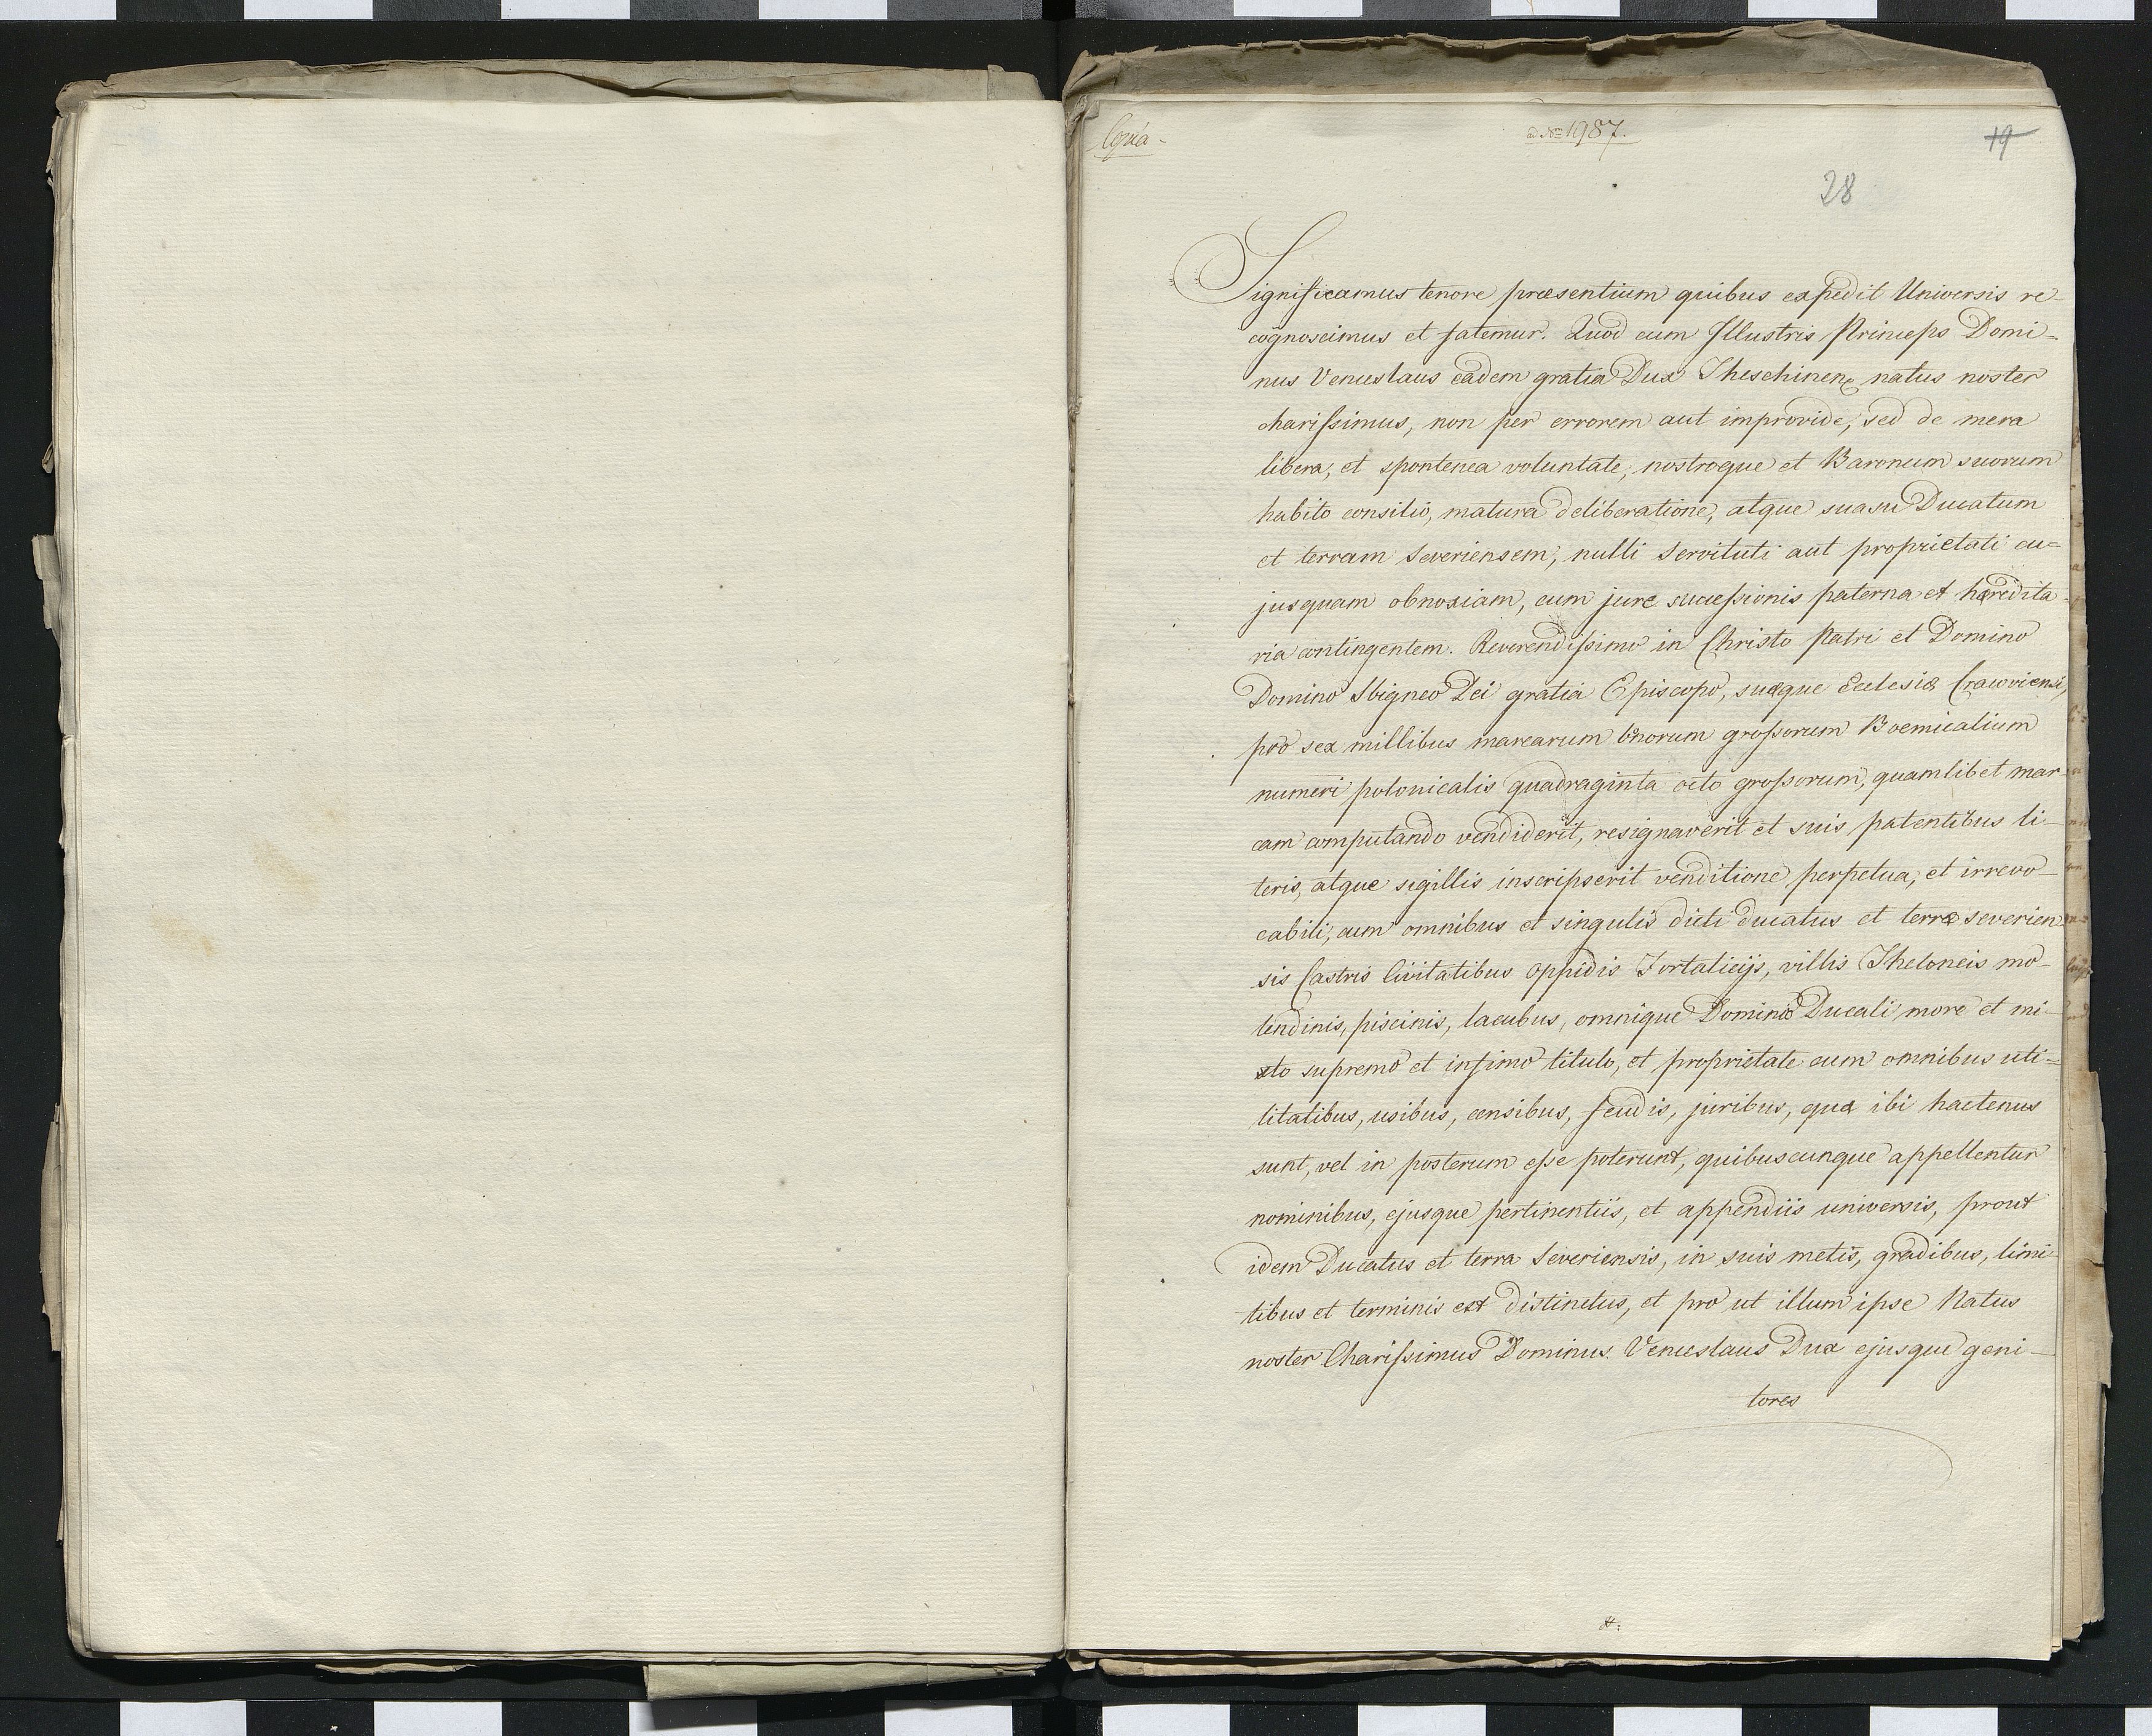 Copia.
ad N= 1987.
19
28
Significamus tenore præsentium quibus expedit Universis re-
cognoscimus et fatemur. Quod cum Illustris Princeps Domi-
nus Venceslaus eadem gratia Dux Theschinen natus noster
charissimus, non per errorem aut improvide, sed de mera
libera, et spontenea voluntate, nostroque et Baronum suorum
habito consilio, matura deliberatione, atque suasu Ducatum
et terram Severiensem, nulli servituti aut proprietati cu-
jusquam obnoxiam, eum jure successionis paterna et hæredita-
ria contingentem. Reverendissimo in Christo Patri et Domino
Domino Sbigneo Dei gratia Episcopo, suæque Ecclesiæ Cracoviensi,
pro sex millibus marcarum bnorum grossorum Boemicalium
numeri polonicalis quadraginta octo grossorum, quamlibet mar-
cam computando vendiderit, resignaverit et suis patentibus li-
teris, atque sigillis inscripserit venditione perpetua, et irrevo-
cabili, cum omnibus et singulis dicti ducatus et terræ severien
sis Castris Civitatibus oppidis Fortaliciis, villis Theloneis mo-
lendinis, piscinis, lacubus, omnique Dominio Ducali more et mi-
xto supremo et infimo titulo, et proprietate cum omnibus uti-
litatibus, usibus, censibus, feudis, juribus, quæ ibi hactenus
sunt, vel in posterum esse poterunt, quibuscunque appellentur
nominibus, ejusque pertinentiis, et appendiis universis, prout
idem Ducatus et terra Severiensis, in suis metis, gradibus, limi-
tibus et terminis est distinctus, et pro ut illum ipse Natus
noster Charissimus Dominus Venceslaus Dux ejusque geni-
tores